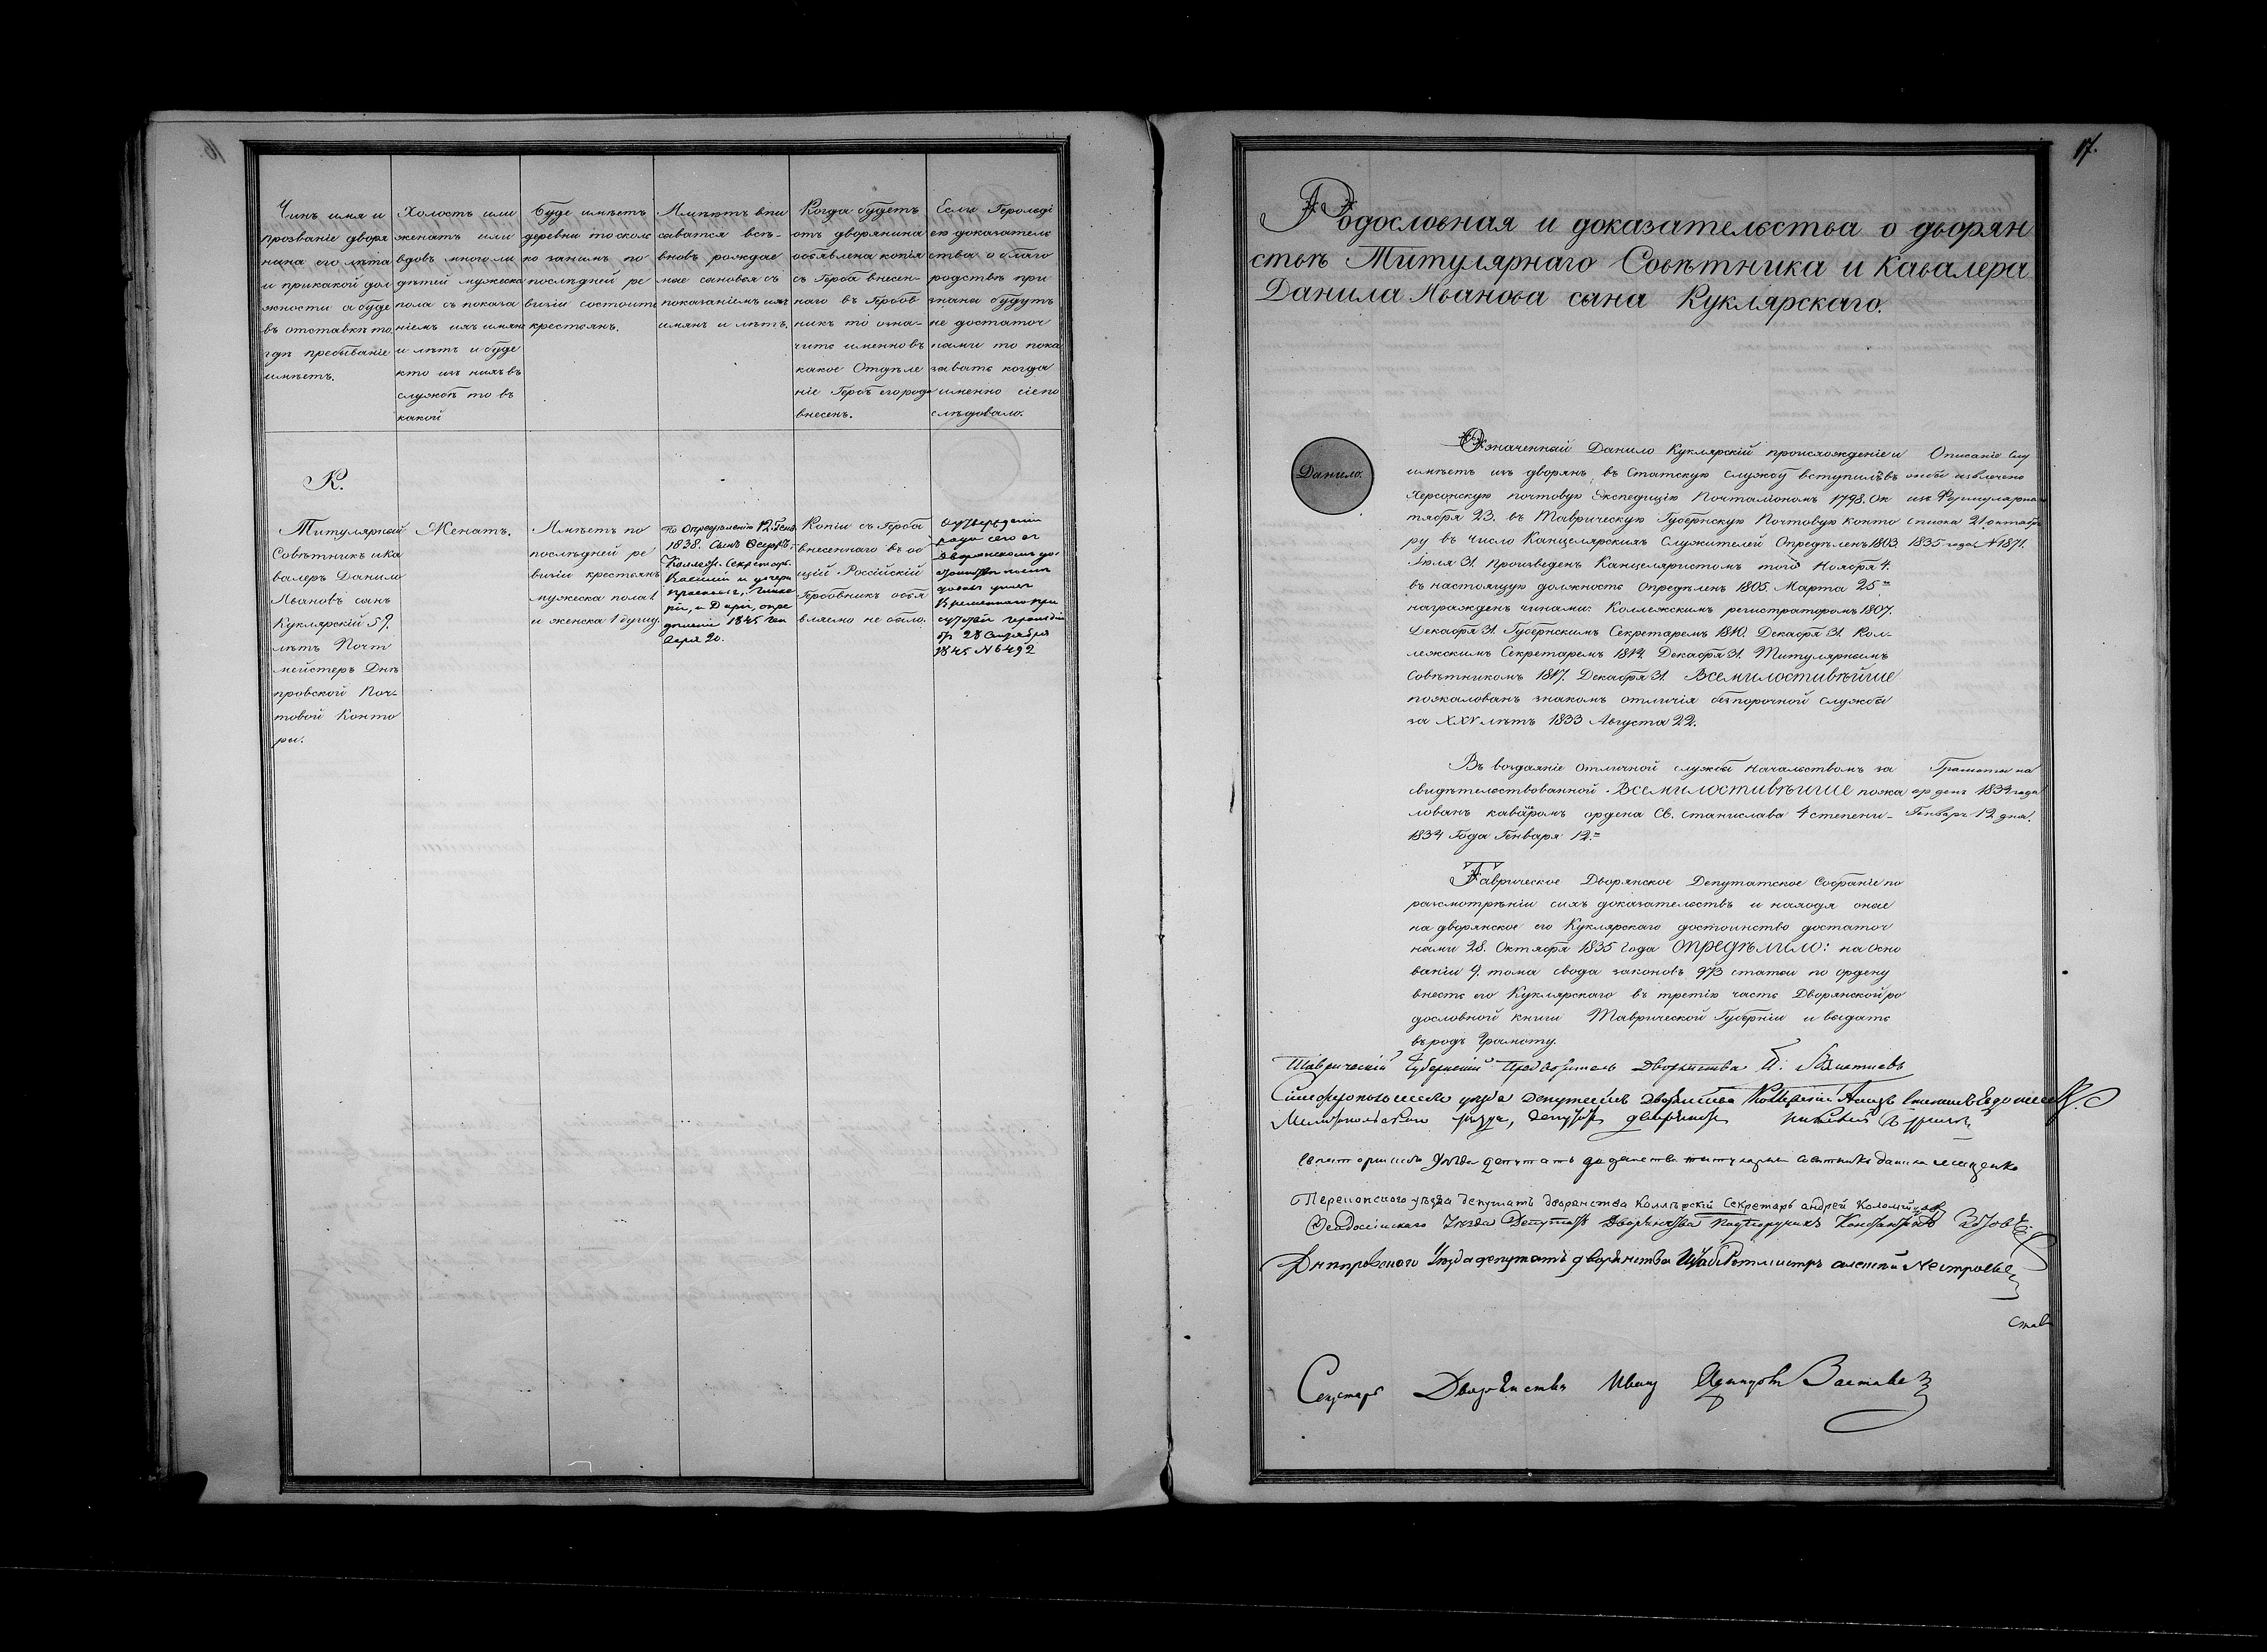 Чинъ имя и
прозваніе дворя
нина его лѣта
и при какой дол
жности а буде
въ отставкѣ то
гдѣ пребываніе
имѣетъ.
Холостъ или
женатъ или
вдовъ много ли
дѣтей мужеска
пола съ показа
ніемъ ихъ имянъ
и лѣтъ и буде
кто изъ нихъ въ
службѣ то въ
какой
Буде имѣетъ
деревни то сколь
ко за нимъ по
послѣдней ре
визіи состоитъ
крестьянъ.
Имѣютъ впи
сыватся всѣ-
вновь рождае
мые сыновья съ
показаніемъ ихъ
имянъ и лѣтъ.
Когда будетъ
отъ дворянина
объявлена копія
съ Герба внесен-
наго въ Гербов
никъ то озна-
чить именно въ
какое Отдѣле
ніе Гербъ его рода
внесенъ.
Если Герольді
ею доказатель
ства о благо
родствѣ при
знаны будутъ
не достаточ
ными то пока
зывать когда
именно сіе по
слѣдовало.
К.
Титулярный
Совѣтникъ и Ка
валеръ Данило
Ивановъ сынъ
Куклярскій 59.
лѣтъ Почт
мейстеръ Днѣ
провской Поч-
товой Конто
ры.
Женатъ.
Имѣетъ по
послѣдней ре
визіи крестьянъ
мужеска пола 1
и женска 1 душу.
По Опредѣленію 12. Генв.
1838. Сынъ
Коллеж. Секретарь
Василій и дочери
Гликe
рія, и Дарія, опре
деленіе 1845 Ген
варя 20.
Копіи съ Герба
внесеннаго въ об
щій Россійскій
Гербовникъ объя
вляемо не было.
Оутвержденіи
рода сего въ
Дворянскомъ до
стоинствѣ
указъ
Временнаго при
сутствія герольдіи
отъ 28 Сентября
1845 № 492
17.
Родословная и доказательства о дворян
ствѣ Титулярнаго Совѣтника и Кавалера
Данила Иванова сына Куклярскаго.
Данило.
Означенный Данило Куклярскій происхожденіе и
имѣетъ изъ дворянъ въ Статскую службу вступилъ въ
Херсонскую почтовую Экспедицію Почталіономъ 1798. Ок
тября 23. въ Таврическую Губернскую Почтовую Конто
ру въ число Канцелярскихъ Служителей Опредѣленъ 1803.
Іюля 31. Произведенъ Канцеляристомъ того Ноября 4.
въ настоящую должность Опредѣленъ 1805. Марта 25.
награжденъ чинами: Коллежскимъ регистраторомъ 1807.
Декабря 31. Губернскимъ Секретаремъ 1810. Декабря 31. Кол-
лежскимъ Секретаремъ 1814. Декабря 31. Титулярнымъ
Совѣтникомъ 1817. Декабря 31. Всемилостивѣйше
пожалованъ знакомъ отличія безпорочной службы
за XXV лѣтъ 1833 Августа 22.
Описаніе Слу
жбы извлечено
изъ Формулярнаго
списка 21 октября
1835 года № 1871.
Въ воздаяніе Отличной службы Начальствомъ за
свидѣтельствованной Всемилостивѣйше пожа
лованъ кавалѣромъ ордена Св. Станислава 4 степени-
1834 Года Генваря 12.
Грамоты на
орденъ 1834 года
Генваря 12 дня.
Таврическое Дворянское Депутатское Собраніе по
разсмотрѣніи сихъ доказательствъ и находя оные
на дворянское его Куклярскаго достоинство достаточ
ными 28. Октября 1835 Года Опредѣлило: на Осно
ваніи 9. тома свода законовъ 973 статьи по Ордену
внесть его Куклярскаго въ третію часть Дворянской ро
дословной книги Таврической Губерніи и выдать
въ родъ Грамоту.
Таврическій Губернскій Предводитель Дворянства
Симферопольскаго уезда депутатъ Дворянства
Мелитопольскаго уезда, депутатъ дворянства
уезда депутатъ дворянства титулярный советникъ данила мещенко
Перекопскаго уѣзда депутатъ дворянства Коллѣжскій Секретарь андрей Коломійцовъ
Феодосійскаго Уезда Депутатъ Дворянства Подпоручикъ Константинъ
Днепровскаго Уезда депутатъ дворянства Штабъ Ротмистръ алексей Нестроевъ
Секретарь Дворянства Иванъ